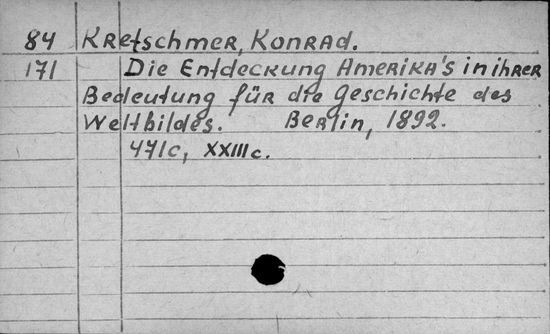 84 Kretschmer, Konrad.
171 Die Entdeckung Amerika's in ihrer
Bedeutung für die Geschichte des
Weltbildes. Berlin, 1892.
471c, XXIIIc.